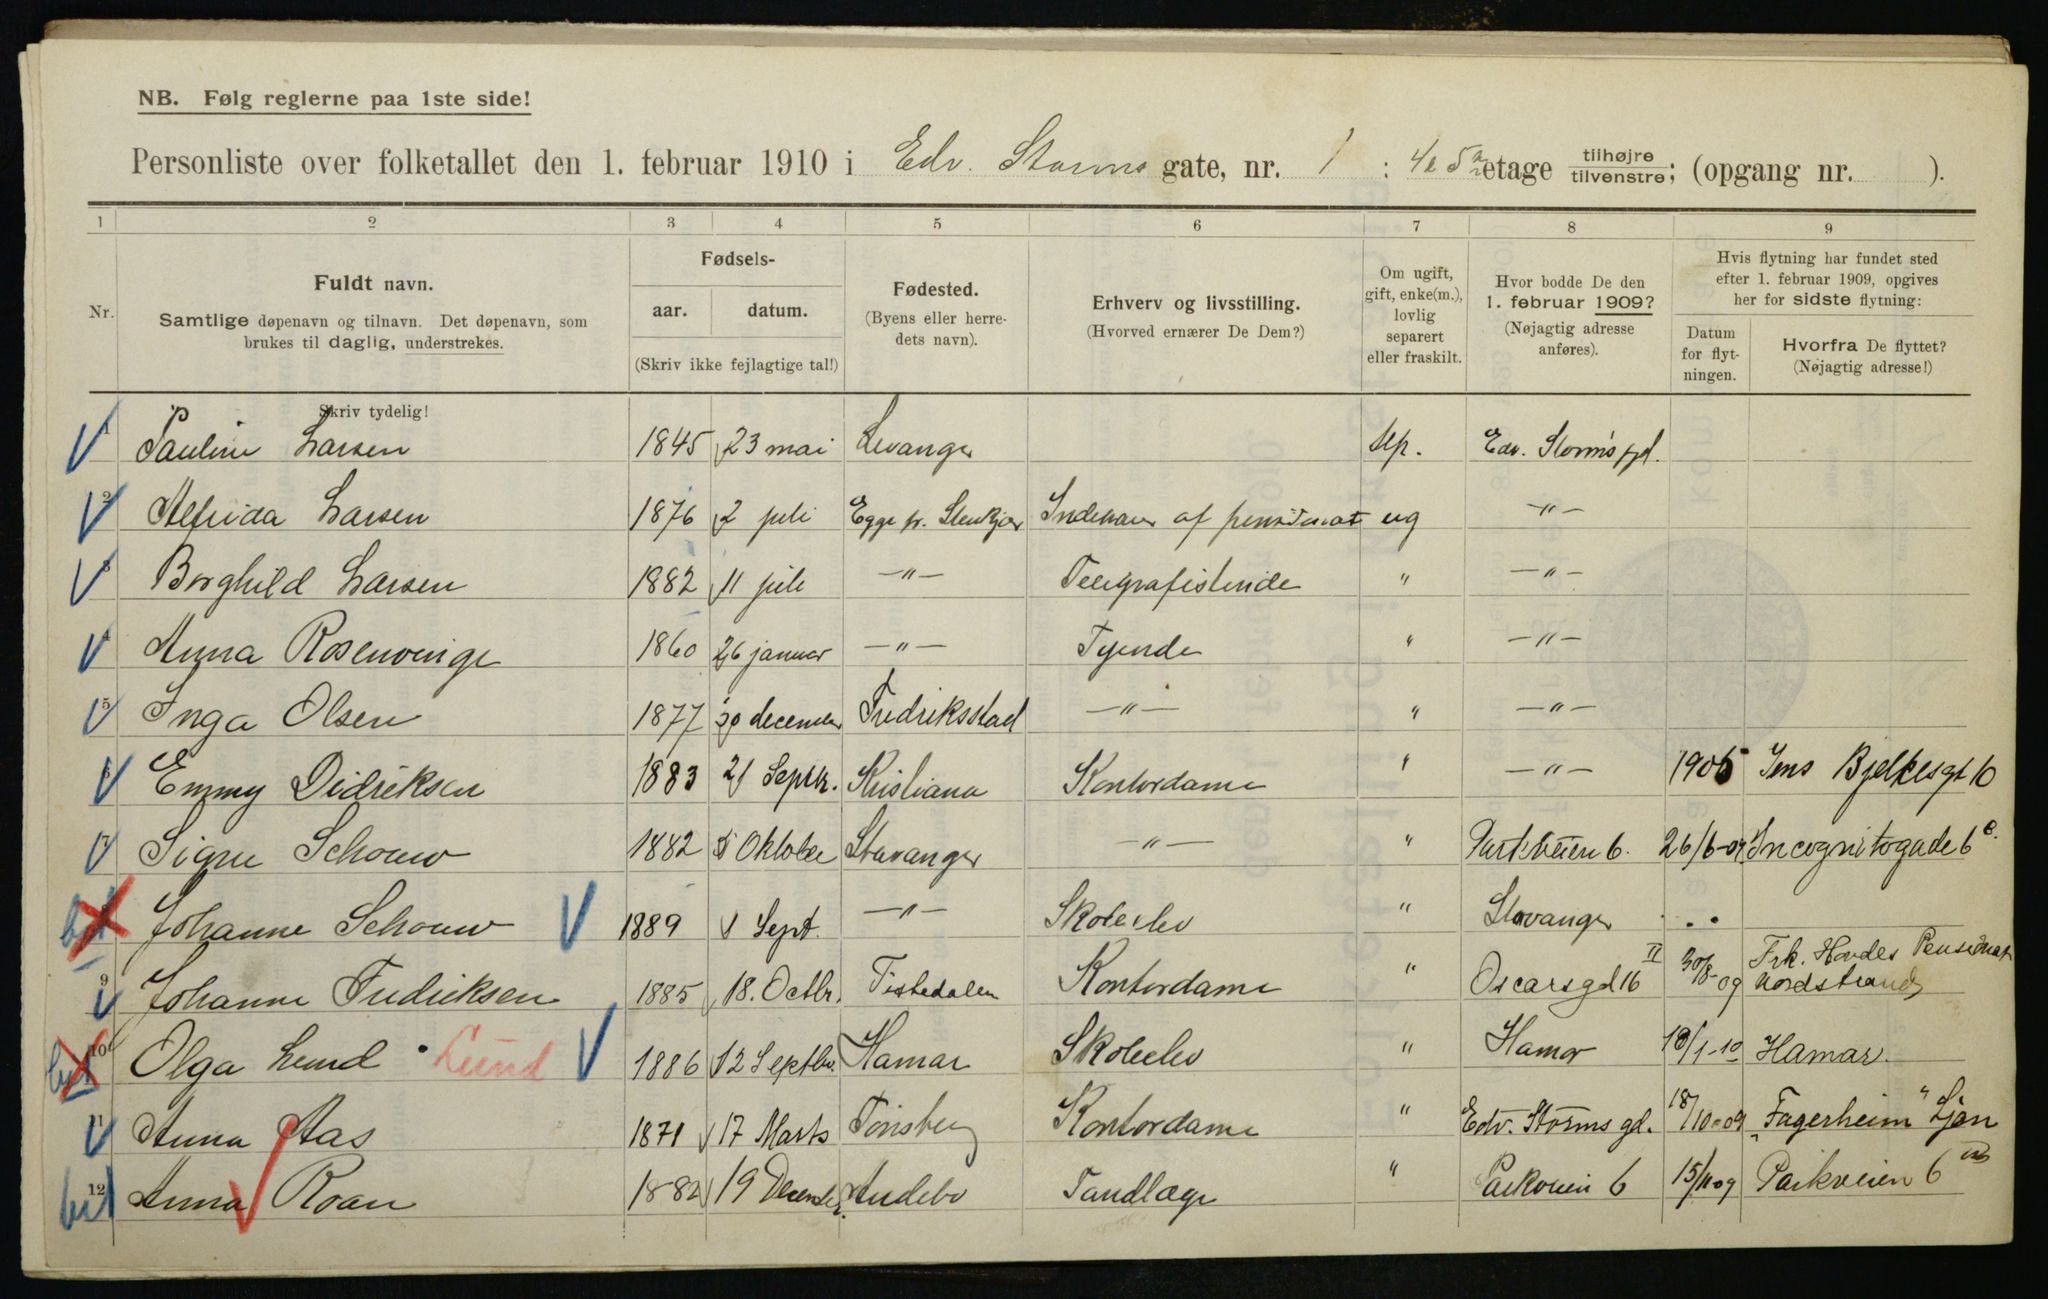 NB. Følg reglerne paa 1ste side!
Personliste over folketallet den 1. februar 1910 i Edv. Storms gate, nr. 1 : 4 & 5 etage tilhøjre tilvenstre; (opgang nr. ).
1 2 3 4 5 6 7 8 9
Nr.
Fuldt navn.
Samtlige døpenavn og tilnavn. Det døpenavn, som
brukes til daglig, understrekes.
Skriv tydelig!
Fødsels-
aar. datum.
(Skriv ikke fejlagtige tal!)
Fødested.
(Byens eller herre-
dets navn).
Erhverv og livsstilling.
(Hvorved ernærer De Dem?)
Om ugift,
gift, enke(m.),
lovlig
separert
eller fraskilt.
Hvor bodde De den
1. februar 1909?
(Nøjagtig adresse
anføres).
Hvis flytning har fundet sted
efter 1. februar 1909, opgives
her for sidste flytning:
Datum
for flyt-
ningen.
Hvorfra De flyttet?
(Nøjagtig adresse!)
1 Pauline Larsen 1845 23 mai Levanger sep. Edv. Storms gd.
2 Alfrida Larsen 1876 2 juli Egge pr. Stenkjær Indehaver af pensionat ug —"—
3 Borghild Larsen 1882 11 juli —"— Telegrafistinde " —"—
4 Anna Rosenvinge 1860 26 januar —"— Tyende " —"—
5 Inga Olsen 1877 30 december Fredriksstad —"— " —"—
6 Emmy Didriksen 1883 21 Septbr. Kristiana Kontordame " —"— 1905 Jens Bjelkesgt 10
7 Signe Schouw 1882 5 Oktober Stavanger —"— " Parkveien 6. 26/6-09 Incognitogade 6 c.
8 Johanne Schouw 1889 1 Sept. —"— Skoleelev " Stavanger . .
9 Johanne Fredriksen 1885 18. Octbr. Tistedalen Kontordame " Oscarsgd 16 II 30/8-09 Frk. Hovdes Pensionat Nordstrand
10 Olga Lund Lund 1886 12 Septbr. Hamar Skoleelev " Hamar 18/1-10 Hamar.
11 Anna Aas 1871 17 Marts Tønsberg Kontordame " Edv. Storms gd. 18/10-09 „Fagerheim" Ljan
12 Anna Roan 1882 19 Decembr. Andebo Tandlæge " Parkveien 6 15/11 09 Parkveien 6